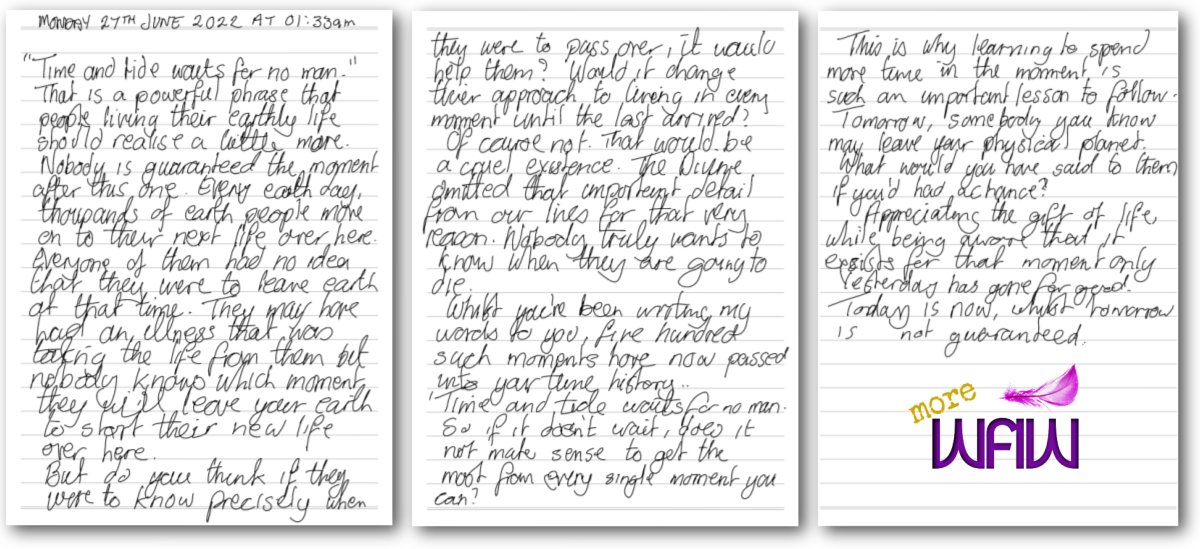 MONDAY 27TH JUNE 2022 AT 01:33am
"Time and tide waits for no man."
That is a powerful phrase that
people living their earthly life
should realise a little more.
Nobody is guaranteed the moment
after this one. Every earth day,
thousands of earth people move
on to their next life over here.
Everyone of them had no idea
that they were to leave earth
at that time. They may have
had an illness that was
taking the life from them but
nobody knows which moment
they will leave your earth
to start their new life
over here.
But do you think if they
were to know precisely when
they were to pass over, it would
help them? Would it change
their approach to living in every
moment until the last arrived?
Of course not. That would be
a cruel existence. The Divine
omitted that important detail
from our lives for that very
reason. Nobody truly wants to
know when they are going to
die.
Whilst you've been writing my
words to you, five hundred
such moments have now passed
into your time history..
'Time and tide waits for no man.
So if it doesn't wait, does it
not make sense to get the
most from every single moment you
can?
This is why learning to spend
more time in the moment is
such an important lesson to follow.
Tomorrow, somebody you know
may leave your physical planet.
What would you have said to them
if you'd had a chance?
Appreciating the gift of life,
while being aware that it
exsists for that moment only
Yesterday has gone for good.
Today is now, whilst tomorrow
is not guaranteed.
more
WAW